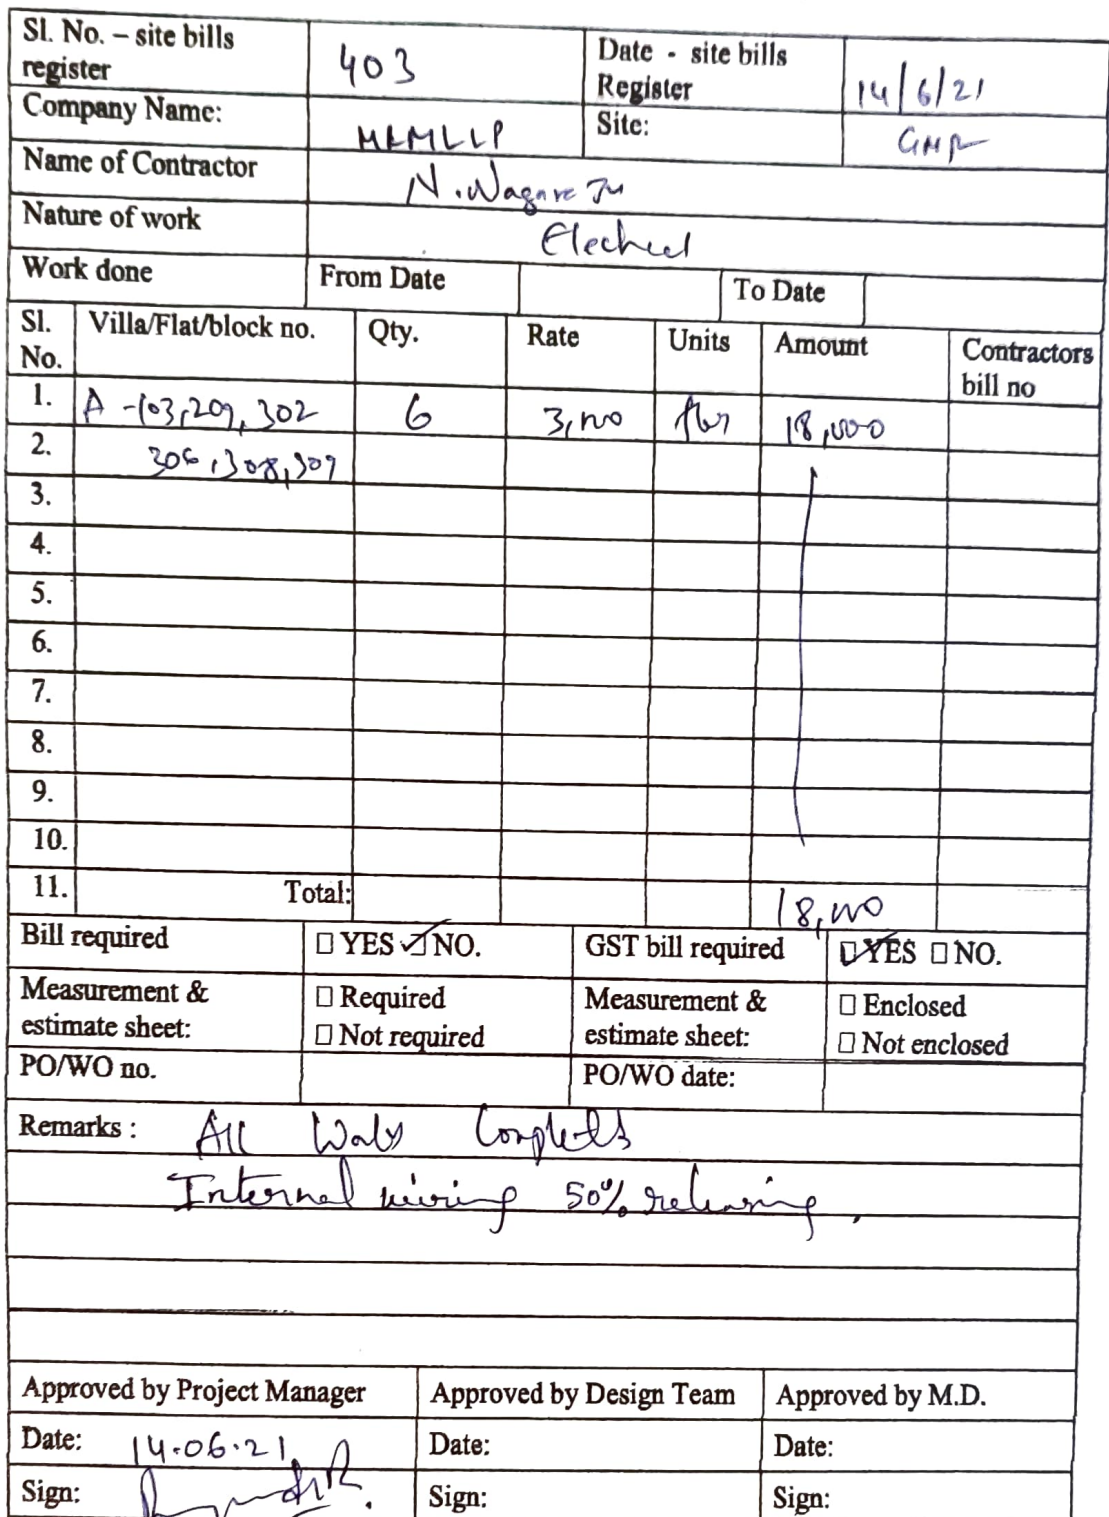 Sl. No. – site bills register 403 Date - site bills Register 14/6/21
Company Name: MRMLLP Site: GMR
Name of Contractor N. Nagaraju
Nature of work Electrical
Work done From Date To Date
Sl. No. Villa/Flat/block no. Qty. Rate Units Amount Contractors bill no
1. A -103,209,302 6 3,000 18,000
2. 306,308,309
3.
4.
5.
6.
7.
8.
9.
10.
11. Total: 18,000
Bill required □ YES ☑ NO. GST bill required ☑ YES □ NO.
Measurement & estimate sheet: □ Required □ Not required Measurement & estimate sheet: □ Enclosed □ Not enclosed
PO/WO no. PO/WO date:
Remarks : All Completed
Internal wiring 50% releasing.
Approved by Project Manager Approved by Design Team Approved by M.D.
Date: 14.06.21 Date: Date:
Sign: Sign: Sign: